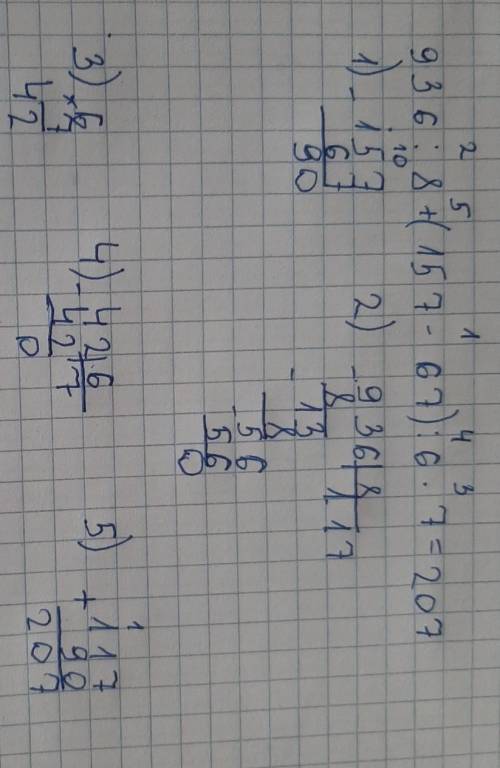 2 5 1 4 3
936:8+(157-67):6·7=207
1) - 157
10
67
90
2) - 936 | 8
8 117
- 13
8
- 56
56
0
3) × 6
7
42
4) - 42 | 6
42 7
0
5) + 117
1
90
207